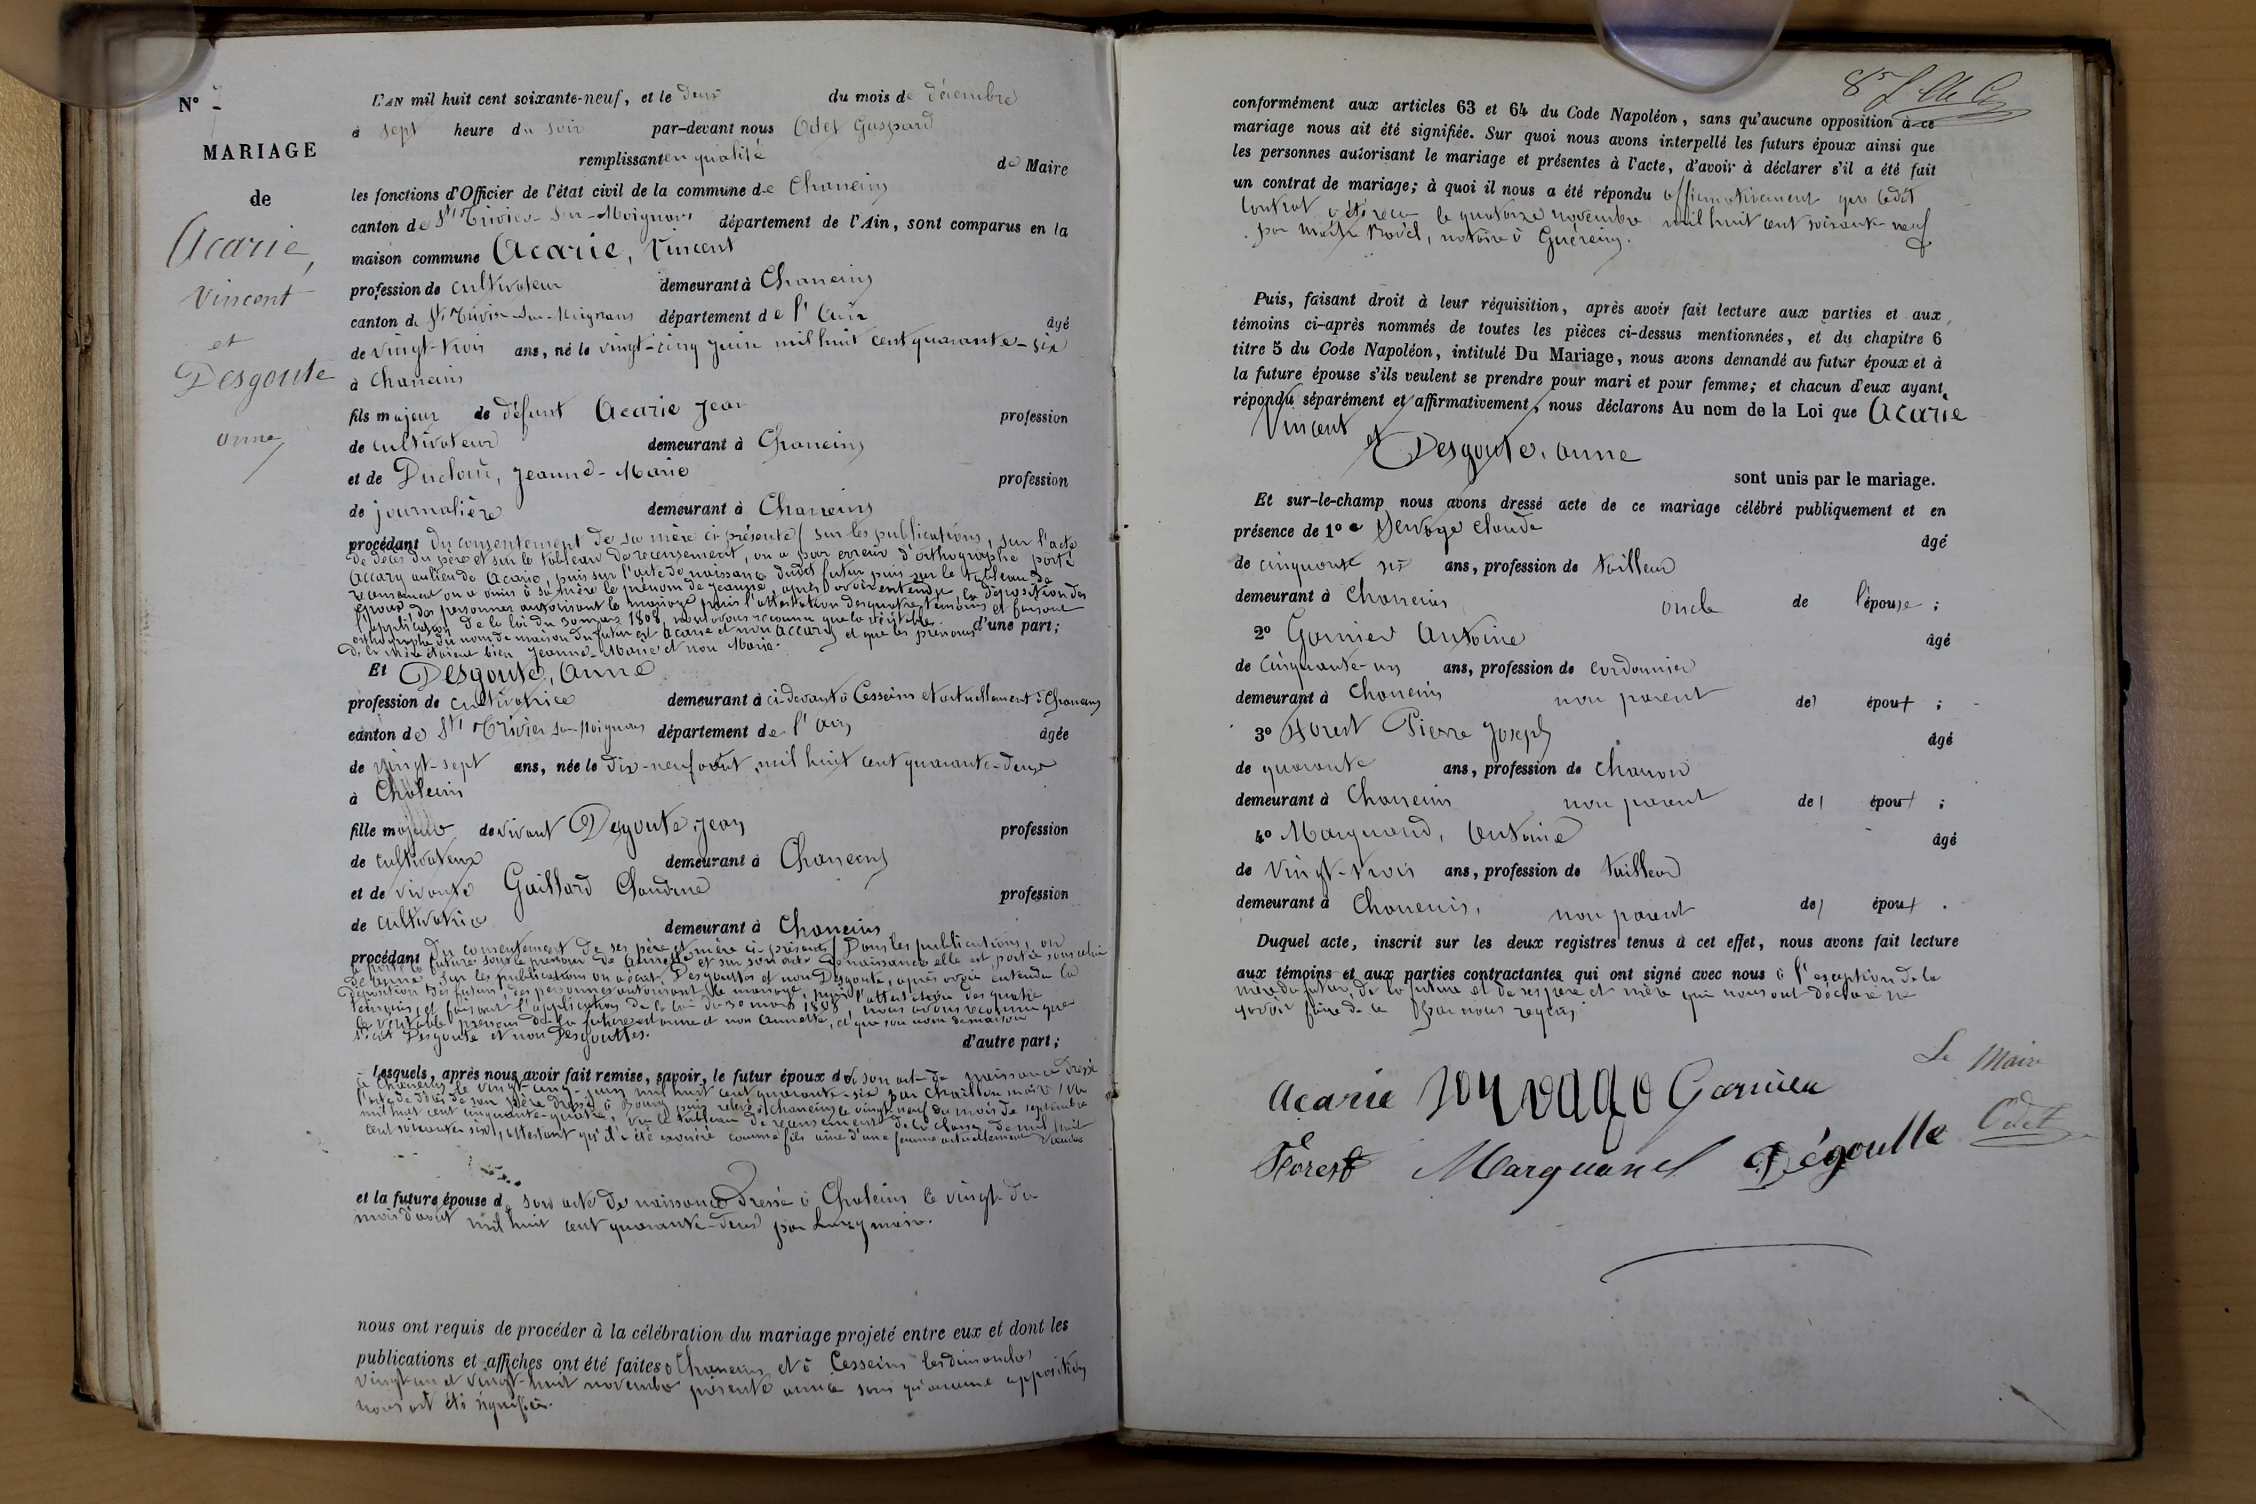 N° 7
MARIAGE
de
Acarie,
Vincent
et
Desgoute
anne
L'AN mil huit cent soixante-neuf, et le deux du mois de décembre
à sept heure du soir par-devant nous Odet Gaspard
remplissant en qualité de Maire
les fonctions d'Officier de l'état civil de la commune de Chaneins
canton de St Trivier-sur-Moignans département de l'Ain, sont comparus en la
maison commune Acarie, Vincent
profession de cultivateur demeurant à Chaneins
canton de St Trivier-sur-Moignans département de l'Ain âgé
de vingt-trois ans, né le vingt-cinq juin mil huit cent quarante-six
à Chaneins
fils majeur de défunt Acarie Jean profession
de cultivateur demeurant à Chaneins
et de Duclout, Jeanne-Marie profession
de journalière demeurant à Chaneins
procédant du consentement de sa mère ci-présente / sur les publications, sur l'acte
de décès du père et sur le tableau de recensement, on a par erreur d'orthographe porté
Accary au lieu de Acarie, puis sur l'acte de naissance dudit futur puis sur le tableau de
recensement on a omis à sa mère le prénom de Jeanne, après avoir entendu la déposition des
époux, des personnes autorisant le mariage puis l'attestation des quatre témoins et faisant
l'application de la loi du 30 mars 1808, nous avons reconnu que la véritable
orthographe du nom de maison du futur est Acarie et non Accary et que les prénoms d'une part;
de la mère étaient bien Jeanne-Marie et non Marie.
Et Desgoute, Anne
profession de cultivatrice demeurant à ci-devant à Cesseins et actuellement à Chaneins
canton de St Trivier sur-Moignans département de l'Ain âgée
de vingt-sept ans, née le dix-neuf août, mil huit cent quarante-deux
à Choleins
fille majeure de vivant Desgoute, Jean profession
de cultivateur demeurant à Chaneins
et de vivante Gaillard Claudine profession
de cultivatrice demeurant à Chaneins
procédant du consentement de ses père et mère ci-présents / Dans les publications, on
a porté la future sous le prénom de Annette et sur son acte de naissance elle est portée sous celui
de anne. Sur les publications on a écrit Desgouttes et non Desgoute, après avoir entendu la
déposition des futurs, des personnes autorisant le mariage, puis l'attestation des quatre
témoins, et faisant l'application de la loi du 30 mars 1808, nous avons reconnu que
le véritable prénom de la future est anne et non annette, et que son nom de maison
était Desgoute et non Desgouttes.
d'autre part;
Lesquels, après nous avoir fait remise, savoir, le futur époux de son acte de naissance dressé
à Chaneins le vingt-cinq juin mil huit cent quarante-six par Chaillon maire / de
l'acte de décès de son père dressé à Bourg puis relevé à Chaneins le vingt-neuf du mois de septembre
mil huit cent cinquante-quatre, vu le tableau de recensement de la classe de mil huit
cent soixante six, attestant qu'il a été exonéré comme fils aîné d'une femme actuellement veuve
et la future épouse de son acte de naissance dressé à Choleins le vingt du
mois d'août mil huit cent quarante-deux par Luzy maire.
nous ont requis de procéder à la célébration du mariage projeté entre eux et dont les
publications et affiches ont été faites à Chaneins et à Cesseins les dimanches
vingt-un et vingt-huit novembre présente année sans qu'aucune opposition
nous ait été signifiée.
conformément aux articles 63 et 64 du Code Napoléon, sans qu'aucune opposition à ce
mariage nous ait été signifiée. Sur quoi nous avons interpellé les futurs époux ainsi que
les personnes autorisant le mariage et présentes à l'acte, d'avoir à déclarer s'il a été fait
un contrat de mariage; à quoi il nous a été répondu affirmativement que ledit
contrat a été reçu le quatorze novembre mil huit cent soixante-neuf
par Maître notaire à Guéreins.
Puis, faisant droit à leur réquisition, après avoir fait lecture aux parties et aux
témoins ci-après nommés de toutes les pièces ci-dessus mentionnées, et du chapitre 6
titre 5 du Code Napoléon, intitulé Du Mariage, nous avons demandé au futur époux et à
la future épouse s'ils veulent se prendre pour mari et pour femme; et chacun d'eux ayant
répondu séparément et affirmativement, nous déclarons Au nom de la Loi que Acarie
Vincent
et Desgoute, anne
sont unis par le mariage.
Et sur-le-champ nous avons dressé acte de ce mariage célébré publiquement et en
présence de 1° Claude
âgé
de cinquante six ans, profession de tailleur
demeurant à Chaneins oncle de l'épouse;
2° Garnier Antoine
âgé
de cinquante-un ans, profession de cordonnier
demeurant à Chaneins non parent de époux;
3° Forest Pierre Joseph
âgé
de quarante ans, profession de charron
demeurant à Chaneins non parent de époux;
4° Marquand, Antoine
âgé
de vingt-trois ans, profession de tailleur
demeurant à Chaneins, non parent de époux.
Duquel acte, inscrit sur les deux registres tenus à cet effet, nous avons fait lecture
aux témoins et aux parties contractantes qui ont signé avec nous à l'exception de la
mère du futur, de la future et de ses père et mère qui nous ont déclaré ne
savoir faire de ce par nous requis.
Le Maire
Acarie Garnier
Odet
Forest Marquand Dégoutte